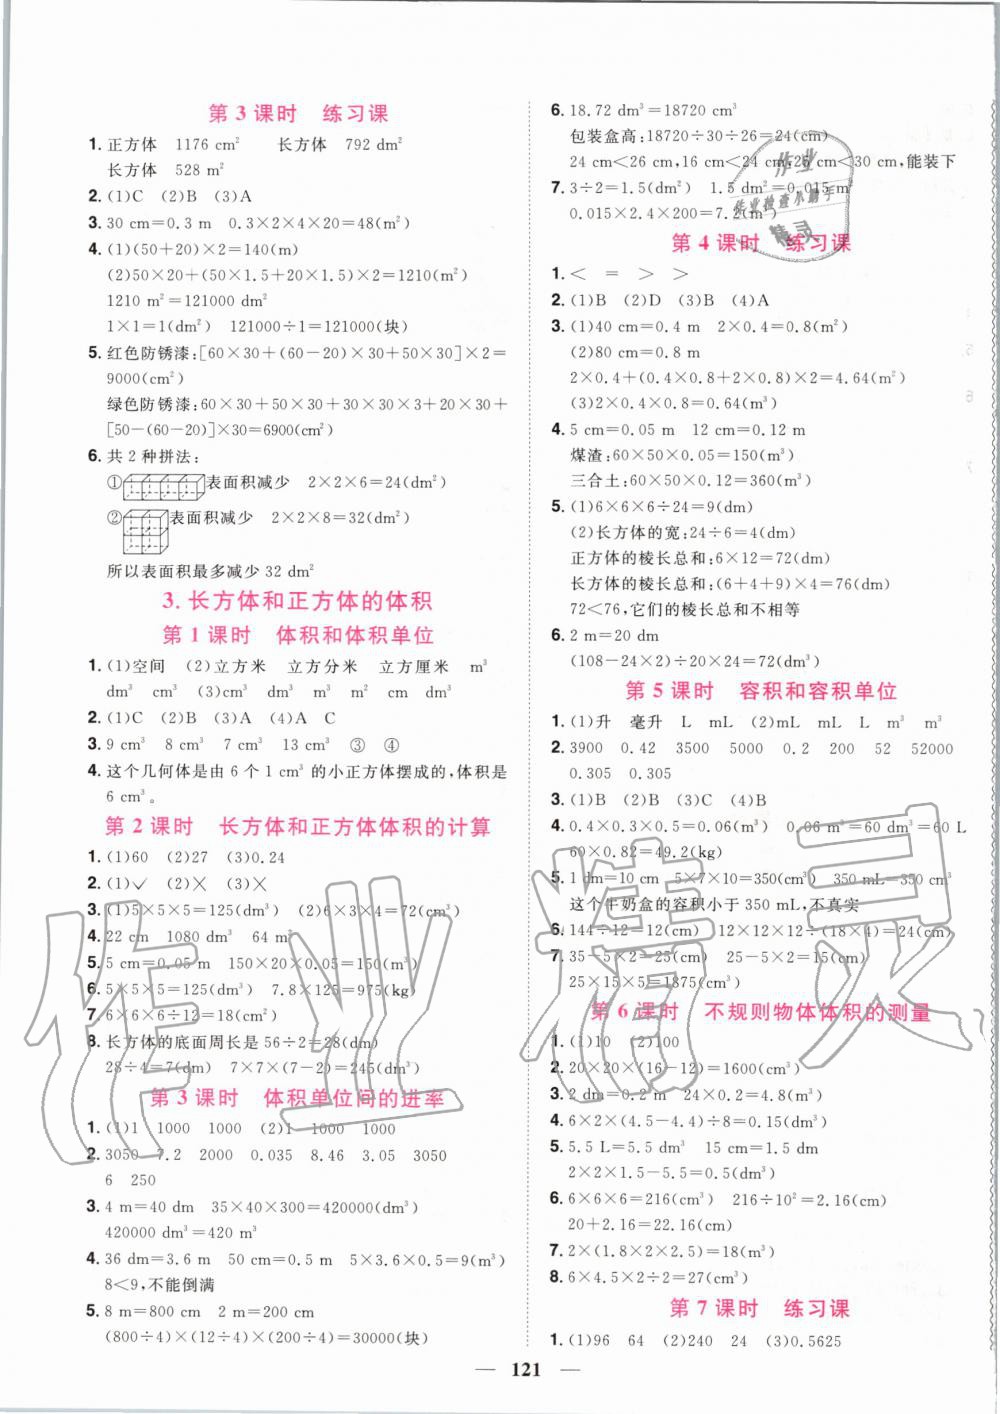 第3课时 练习课
1. 正方体 1176 cm² 长方体 792 dm²
长方体 528 m²
2. (1)C (2)B (3)A
3. 30 cm=0.3 m 0.3×2×4×20=48(m²)
4. (1)(50+20)×2=140(m)
(2)50×20+(50×1.5+20×1.5)×2=1210(m²)
1210 m²=121000 dm²
1×1=1(dm²) 121000÷1=121000(块)
5. 红色防锈漆:[60×30+(60-20)×30+50×30]×2=
9000(cm²)
绿色防锈漆:60×30+50×30+30×30×3+20×30+
[50-(60-20)]×30=6900(cm²)
6. 共2种拼法:
①表面积减少 2×2×6=24(dm²)
②表面积减少 2×2×8=32(dm²)
所以表面积最多减少32 dm²
3. 长方体和正方体的体积
第1课时 体积和体积单位
1. (1)空间 (2)立方米 立方分米 立方厘米 m³
dm³ cm³ (3)cm³ dm³ m³ m² cm dm³
2. (1)C (2)B (3)A (4)A C
3. 9 cm³ 8 cm³ 7 cm³ 13 cm³ ③ ④
4. 这个几何体是由6个1 cm³的小正方体摆成的,体积是
6 cm³。
第2课时 长方体和正方体体积的计算
1. (1)60 (2)27 (3)0.24
2. (1)✓ (2)× (3)×
3. (1)5×5×5=125(dm³) (2)6×3×4=72(cm³)
4. 22 cm 1080 dm³ 64 m³
5. 5 cm=0.05 m 150×20×0.05=150(m³)
6. 5×5×5=125(dm³) 7.8×125=975(kg)
7. 6×6×6÷12=18(cm)
8. 长方体的底面周长是56÷2=28(dm)
28÷4=7(dm) 7×7×(7-2)=245(dm³)
第3课时 体积单位间的进率
1. (1)1 1000 1000 (2)1 1000 1000
2. 3050 7.2 2000 0.035 8.46 3.05 3050
6 250
3. 4 m=40 dm 35×40×300=420000(dm³)
420000 dm³=420 m³
4. 36 dm=3.6 m 50 cm=0.5 m 5×3.6×0.5=9(m³)
8<9,不能倒满
5. 8 m=800 cm 2 m=200 cm
(800÷4)×(12÷4)×(200÷4)=30000(块)
6. 18.72 dm³=18720 cm³
包装盒高:18720÷30÷26=24(cm)
24 cm<26 cm,16 cm<24 cm,26 cm<30 cm,能装下
7. 3÷2=1.5(dm²) 1.5 dm²=0.015 m²
0.015×2.4×200=7.2(m³)
第4课时 练习课
1. < = > >
2. (1)B (2)D (3)B (4)A
3. (1)40 cm=0.4 m 2×0.4=0.8(m²)
(2)80 cm=0.8 m
2×0.4+(0.4×0.8+2×0.8)×2=4.64(m²)
(3)2×0.4×0.8=0.64(m³)
4. 5 cm=0.05 m 12 cm=0.12 m
煤渣:60×50×0.05=150(m³)
三合土:60×50×0.12=360(m³)
5. (1)6×6×6÷24=9(dm)
(2)长方体的宽:24÷6=4(dm)
正方体的棱长总和:6×12=72(dm)
长方体的棱长总和:(6+4+9)×4=76(dm)
72<76,它们的棱长总和不相等
6. 2 m=20 dm
(108-24×2)÷20×24=72(dm³)
第5课时 容积和容积单位
1. (1)升 毫升 L mL (2)mL mL L m³ m³
2. 3900 0.42 3500 5000 0.2 200 52 52000
0.305 0.305
3. (1)B (2)B (3)C (4)B
4. 0.4×0.3×0.5=0.06(m³) 0.06 m³=60 dm³=60 L
60×0.82=49.2(kg)
5. 1 dm=10 cm 5×7×10=350(cm³) 350 mL=350 cm³
这个牛奶盒的容积小于350 mL,不真实
6. 144÷12=12(cm) 12×12×12÷(18×4)=24(cm)
7. 35-5×2=25(cm) 25-5×2=15(cm)
25×15×5=1875(cm³)
第6课时 不规则物体体积的测量
1. (1)10 (2)100
2. 20×20×(16-12)=1600(cm³)
3. 2 dm=0.2 m 24×0.2=4.8(m³)
4. 6×2×(4.5-4.4)÷8=0.15(dm³)
5. 5.5 L=5.5 dm³ 15 cm=1.5 dm
2×2×1.5-5.5=0.5(dm³)
6. 6×6×6=216(cm³) 216÷10²=2.16(cm)
20+2.16=22.16(cm)
7. 2×(1.8×2×2.5)=18(m³)
8. 6×4.5×2÷2=27(cm³)
第7课时 练习课
1. (1)96 64 (2)240 24 (3)0.5625
121
作业
作业检查小助手
精灵
作业精灵